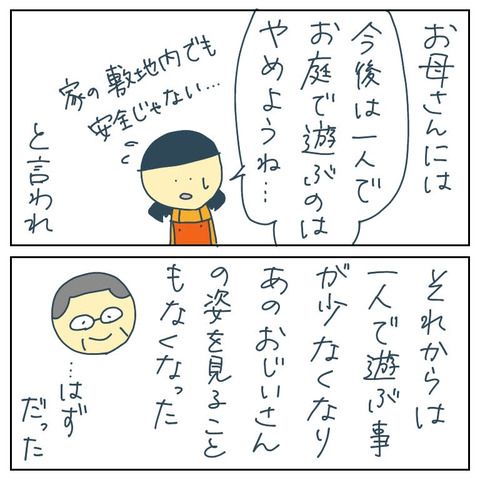 お母さんには
今後は一人で
お庭で遊ぶのは
やめようね…
家の敷地内でも
安全じゃない…
と言われ
それからは
一人で遊ぶ事
が少なくなり
あのおじいさん
の姿を見ること
もなくなった
…はず
だった